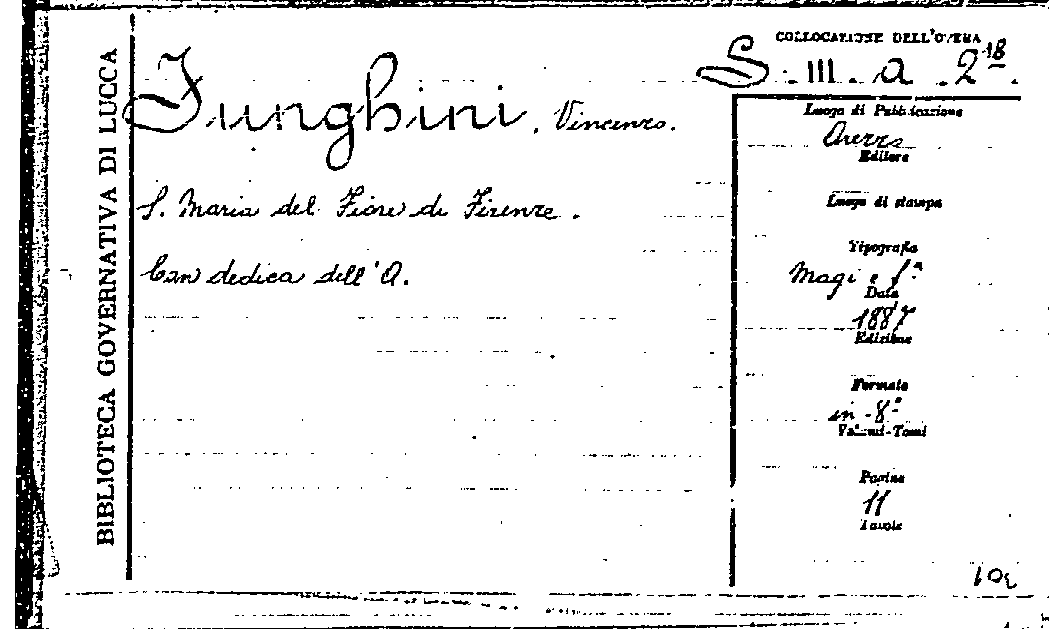 BIBLIOTECA GOVERNATIVA DI LUCCA
Funghini, Vincenzo.
S. Maria del Fiore di Firenze.
Con dedica dell'A.
COLLOCAZIONE DELL'OPERA
S. III. a. 2 18.
Luogo di Pubblicazione
Arezzo
Editore
Luogo di stampa
Tipografia
Magi e f.ª
Data
1887
Edizione
Formato
in-8º
Volumi-Tomi
Pagine
11
Tavole